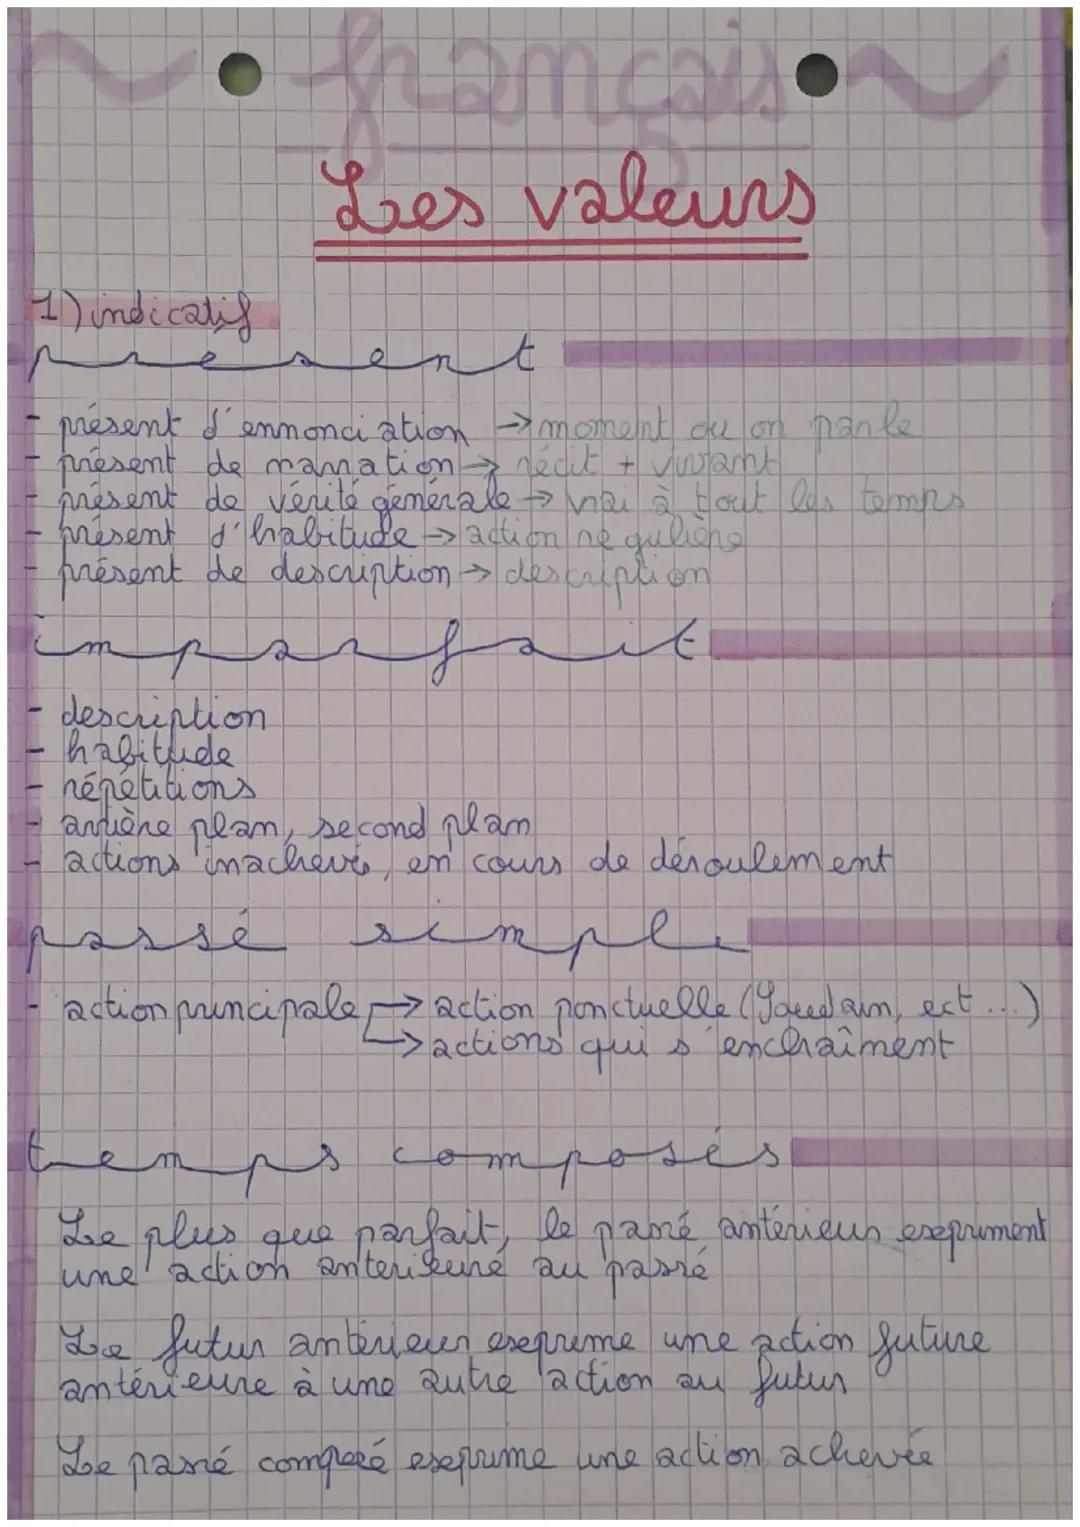 français
Les valeurs
1) indicatif
présent
- présent d'ennonciation → moment ou on parle
- présent de narration → récit + vivant
- présent de vérité générale → vrai à tout les temps
- présent d'habitude → action régulière
- présent de description → description
imparfait
- description
- habitude
- répétitions
- arrière plan, second plan
- actions inachevés, en cours de déroulement
passé simple
- action principale → action ponctuelle (Soudain, ect...)
→ actions qui s'enchraîment
temps composés
Le plus que parfait, le passé antérieur exepriment
une action anterieure au passé
Le futur antérieur exeprime une action future
antérieure à une autre action au futur
Le passé composé exeprime une action achevée